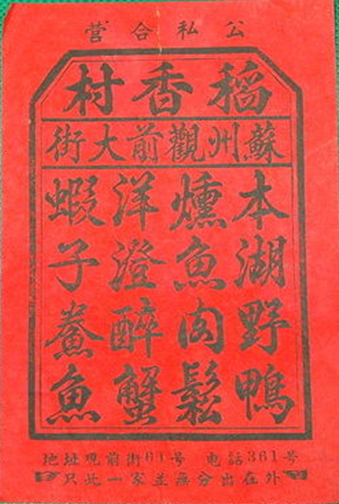 公私合营
稻香村
蘇州觀前大街
本湖野鴨
燻魚肉鬆
洋澄醉蟹
蝦子鯗魚
地址观前街61号 电話361号
只此一家並無分出在外